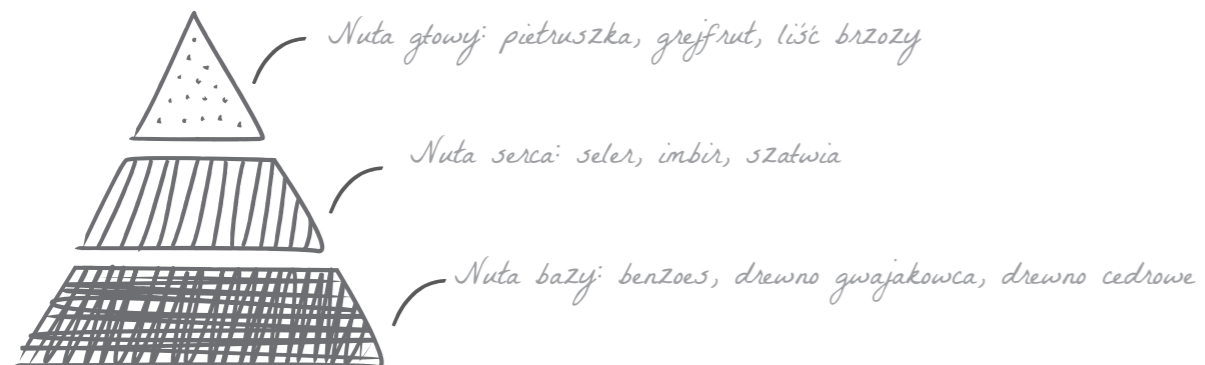 Nuta głowy: pietruszka, grejfrut, liść brzozy
Nuta serca: seler, imbir, szałwia
Nuta bazy: benzoes, drewno gwajakowca, drewno cedrowe